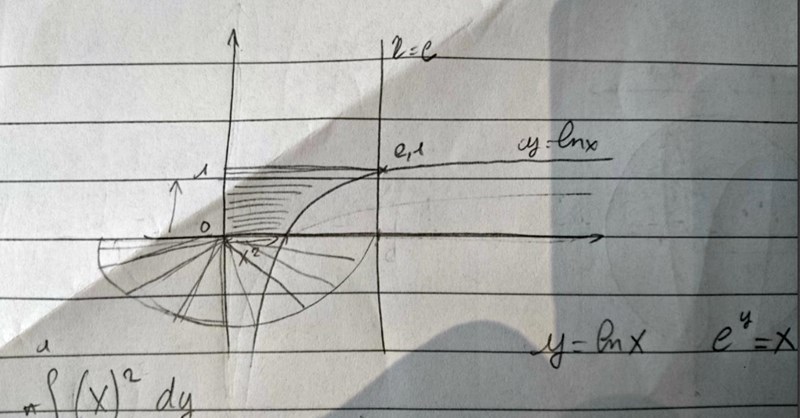 x=e
e,1
y=lnx
1
0
x²
y=lnx e^y=x
1
π∫(x)² dy